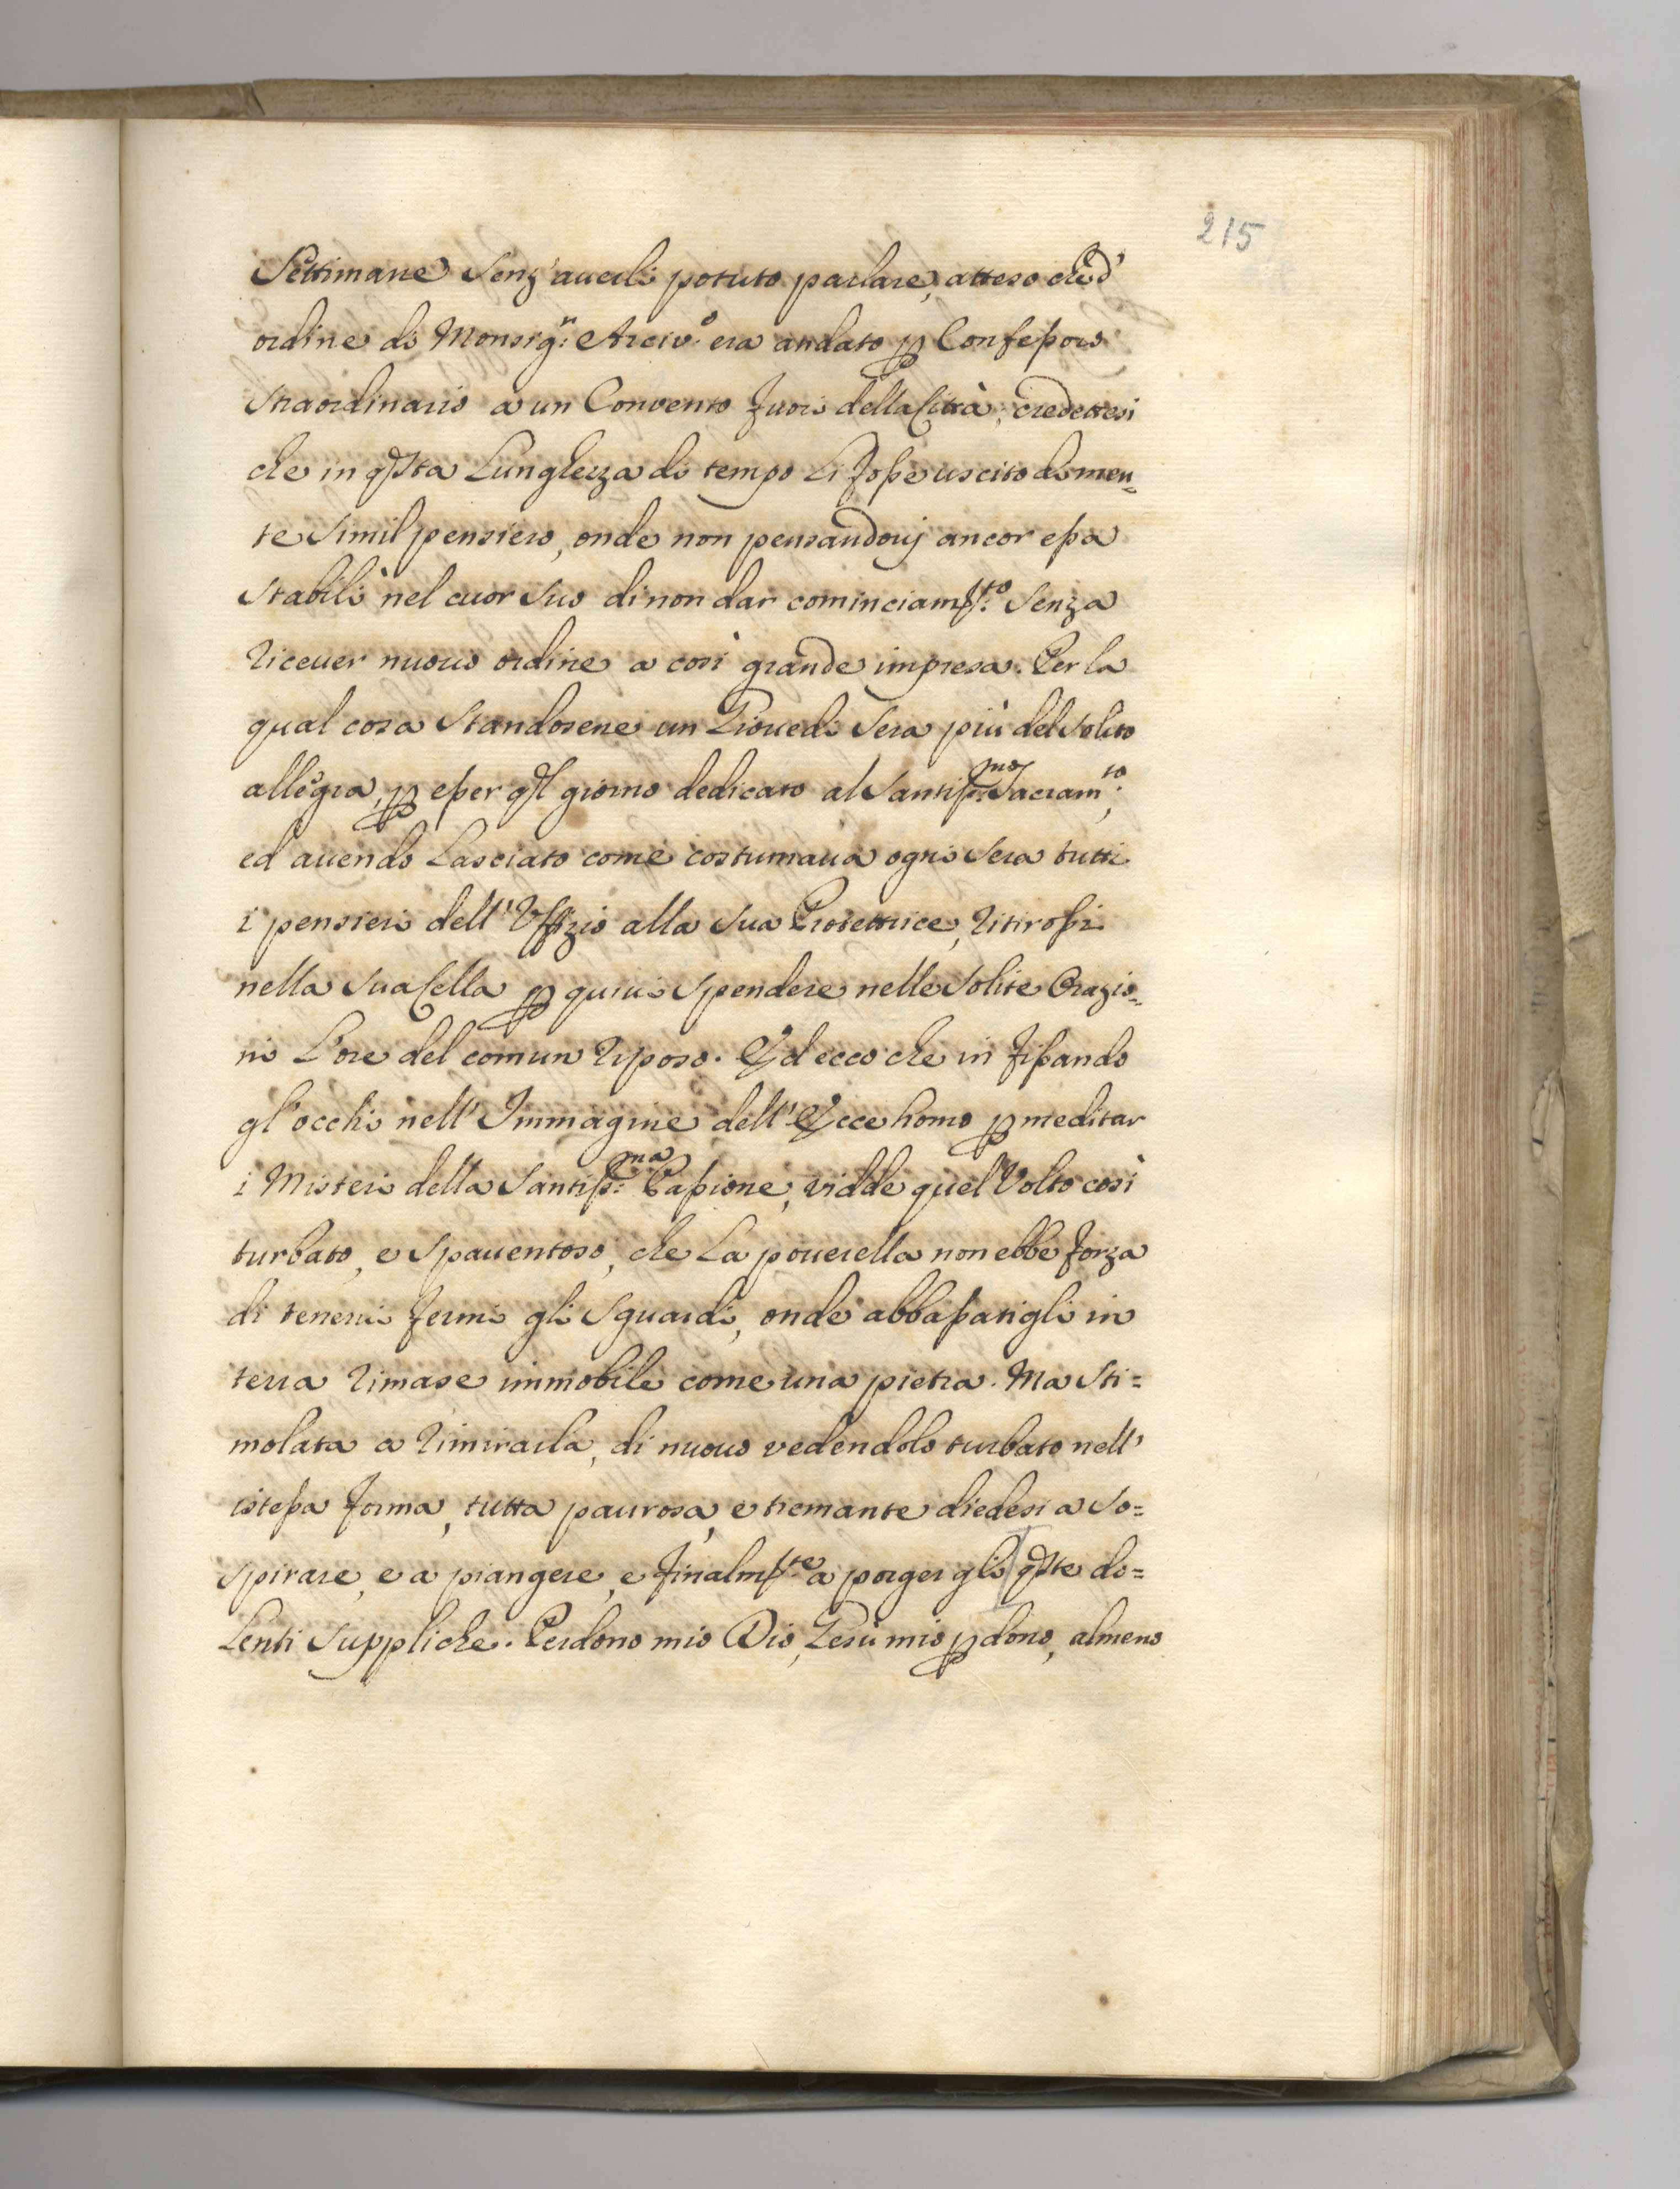 215
Settimane senz'auerli potuto parlare, atteso che d'
ordine di Monsig.r Arciv.o era andato p Confessore
straordinario a un Convento fuori della Città; credettesi
che in qsta Lunghezza di tempo Li fosse uscito di men=
te simil pensiero, onde non pensandovj ancor essa
stabilì nel cuor suo di non dar cominciam.to senza
riceuer nuouo ordine a così grande impresa. Per la
qual cosa standosene un Giouedi sera più del solito
allegra, p esser ql giorno dedicato al Santiss.mo Sacram.to;
ed auendo Lasciato come costumaua ogni sera tutti
i pensieri dell'Uffizio alla sua Protettrice, ritirossi
nella sua Cella p quiui spendere nelle solite Orazio=
ni L'ore del comun riposo. Ed ecco che in fissando
gl'occhi nell'Immagine dell'Ecce homo p meditar
i Misteri della Santiss.ma Passione, vidde quel Volto così
turbato, e spauentoso, che La pouerella non ebbe forza
di tenerui fermi gli sguardi, onde abbassatigli in
terra rimase immobile come una pietra. Ma sti=
molata a rimirarla, di nuouo vedendolo turbato nell'
istessa forma, tutta paurosa, e tremante diedesi a so=
spirare, e a piangere, e finalm.te a porger gli qste do=
Lenti suppliche. Perdono mio Dio, Gesù mio pdono, almeno